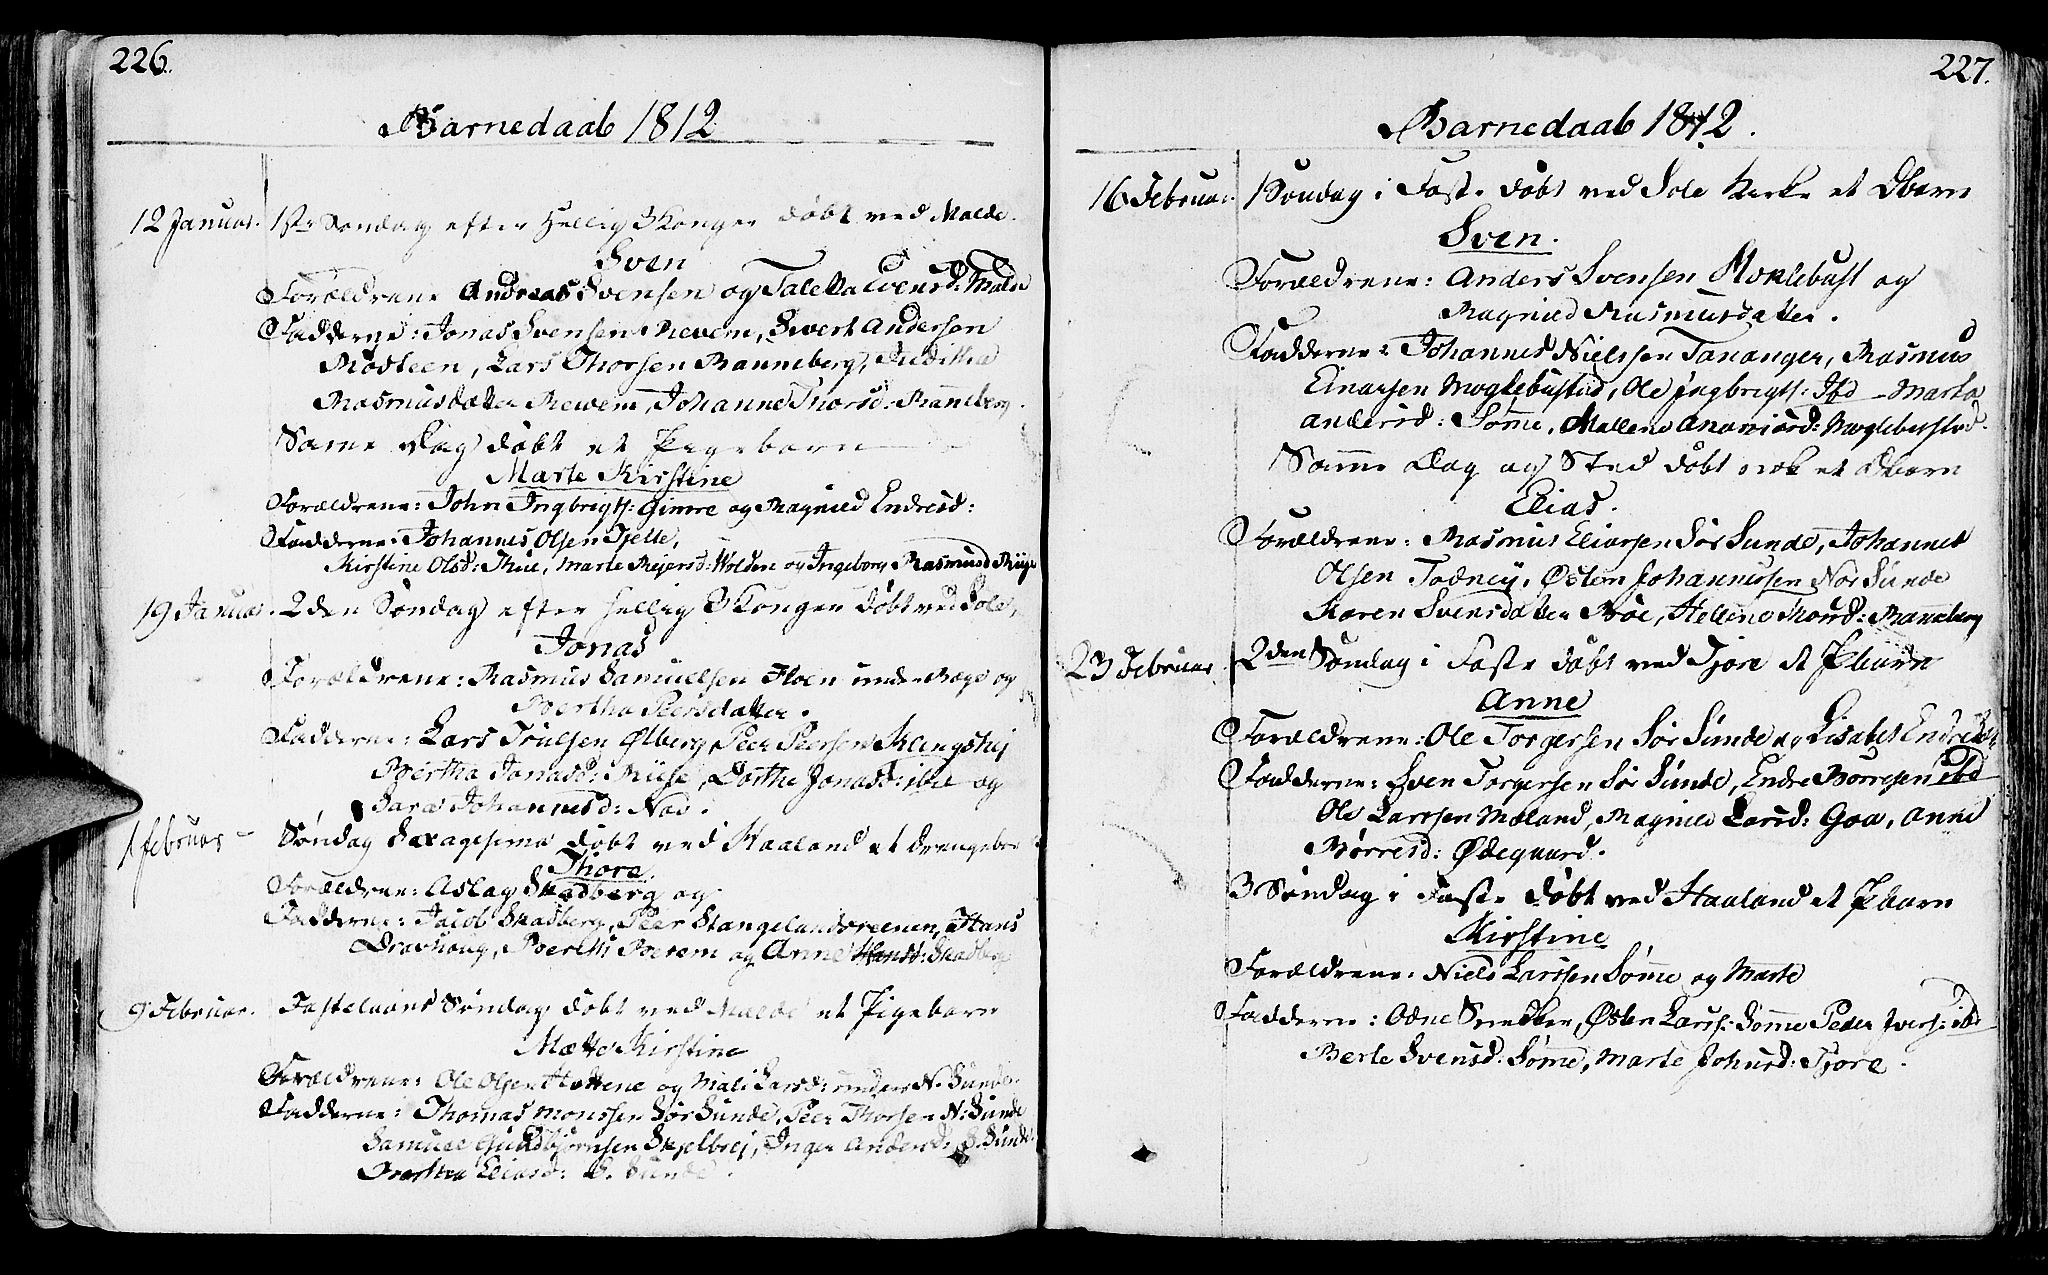 226.
Barnedaab 1812
12 Januar. 1ste Søndag efter Hellig 3 Konger døbt ved Malde.
Sven
Forældrene Andreas Svensen og Taletta Malde
Fadderne: Jonas Svensen Revem, Sivert Andersen
Rosteen, Lars Thorsen Ranneberg,
Rasmusdatter Rewem, Johanne Thorsd: Ranneberg.
Same Dag døbt et Pigebarn
Marte Kirstine
Forældrene: John Ingbrigts: Gimre og Magnild Endresd:
Fadderne: Johannes Olsen Tjelle,
Kirstine Olsd: Thue, Marte Reiersd: Wolden og Ingeborg Rasmusd
19 Januar. 2den Søndag efter Hellig 3 Konger døbt ved Sole,
Jonas
Forældrene: Rasmus Samuelsen Floen under Ræge og
Bertha Peersdatter.
Fadderne: Lars Trulsen Ølberg, Peer Peersen
Bertha Jonasd: Riise, Dorthe Jonasd: ibid og
Sara Johannesd:
1 februar - Søndag Sexagesima døbt ved Haaland et drengebrn
Thore.
Forældrene: Aslag Skadberg og
Fadderne: Jacob Skadberg, Peer Stangelandsreenen, Hans
Berethe og Anne Hansd: Skadberg
9 Februar. Fastelavns Søndag døbt ved Malde et Pigebarn
Mætte Kirstine
Forældrene: Ole Olsen og Mali Larsd: under N. Sunde.
Fadderne: Thomas Monssen Sør Sunde, Peer Thorsen N: Sunde
Samuel Gundbjørnsen Skjelbrej, Inger Andersd: S. Sunde
Eliasd: S. Sunde.
227.
Barnedaab 1812.
16 Februar. 1 Søndag i Faste døbt ved Sole Kirke et Dbarn
Sven.
Forældrene: Anders Svensen Moklebust og
Magnild Rasmusdatter.
Fadderne: Johannes Nielssen Tananger, Rasmus
Einarsen Moglebustad, Ole Ingbrigts: Ibd - Marta
Andersd: Sømme, Mallene Moglebustad.
Samme Dag og Sted døbt nok et Dbarn
Elias.
Forældrene: Rasmus Eliassen Sør Sunde, Johannes
Olsen Todney, Østen Johannessen Nor Sunde
Karen Svensdatter Røe, Hellene Thorsd: Ranneberg
23 Februar. 2den Søndag i Faste døbt ved Tjora et Pbarn
Anne
Forældrene: Ole Torgersen Sør Sunde og Lisabet
Fadderne: Sven Torgersen Sør Sunde, Endre Børresen ibd
Ole Larssen Meland, Magnild Larsd: Goa, Anne
Børresd: Ødegaard.
3 Søndag i Faste døbt ved Haaland et Pbarn
Kirstine
Forældrene: Niels Larssen Sømme og Marte
Fadderne: Odne Snedker, Østen Larss: Sømme Peder Ivers: ibd
Berte Svensd: Sømme, Marte Johnsd: Tjora.